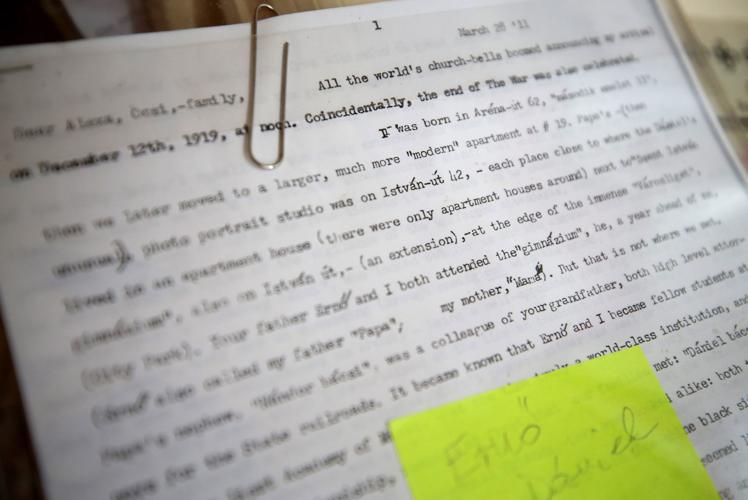 1 March 28 '11
Dear Alexa, -family, All the world's church-bells boomed announcing my arrival
on December 12th, 1919, at noon. Coincidentally, the end of The War was also celebrated.
I was born in Aréna-út 62, "második emelet 11",
then we later moved to a larger, much more "modern" apartment at # 19. Papa's,-(then
unusual), photo portrait studio was on István-út 42, - each place close to where the Dániel's
lived in an apartment house (there were only apartment houses around) next to "Szent István
gimnázium", also on István út,- (an extension),-at the edge of the immense "Városliget",
(City Park). Your father Ernő and I both attended the "gimnázium", he, a year ahead of me,
(Ernő also called my father "Papa", my mother, "Mama"). But that is not where we met.
Papa's nephew, "Nándor bácsi", was a colleague of your grandfather, both high level attor-
neys for the State railroads. It became known that Ernő and I became fellow students at
Academy of a world-class institution, and
met: "Dániel bács
alike: both t
black si
seemed l
Ernő
Dániel